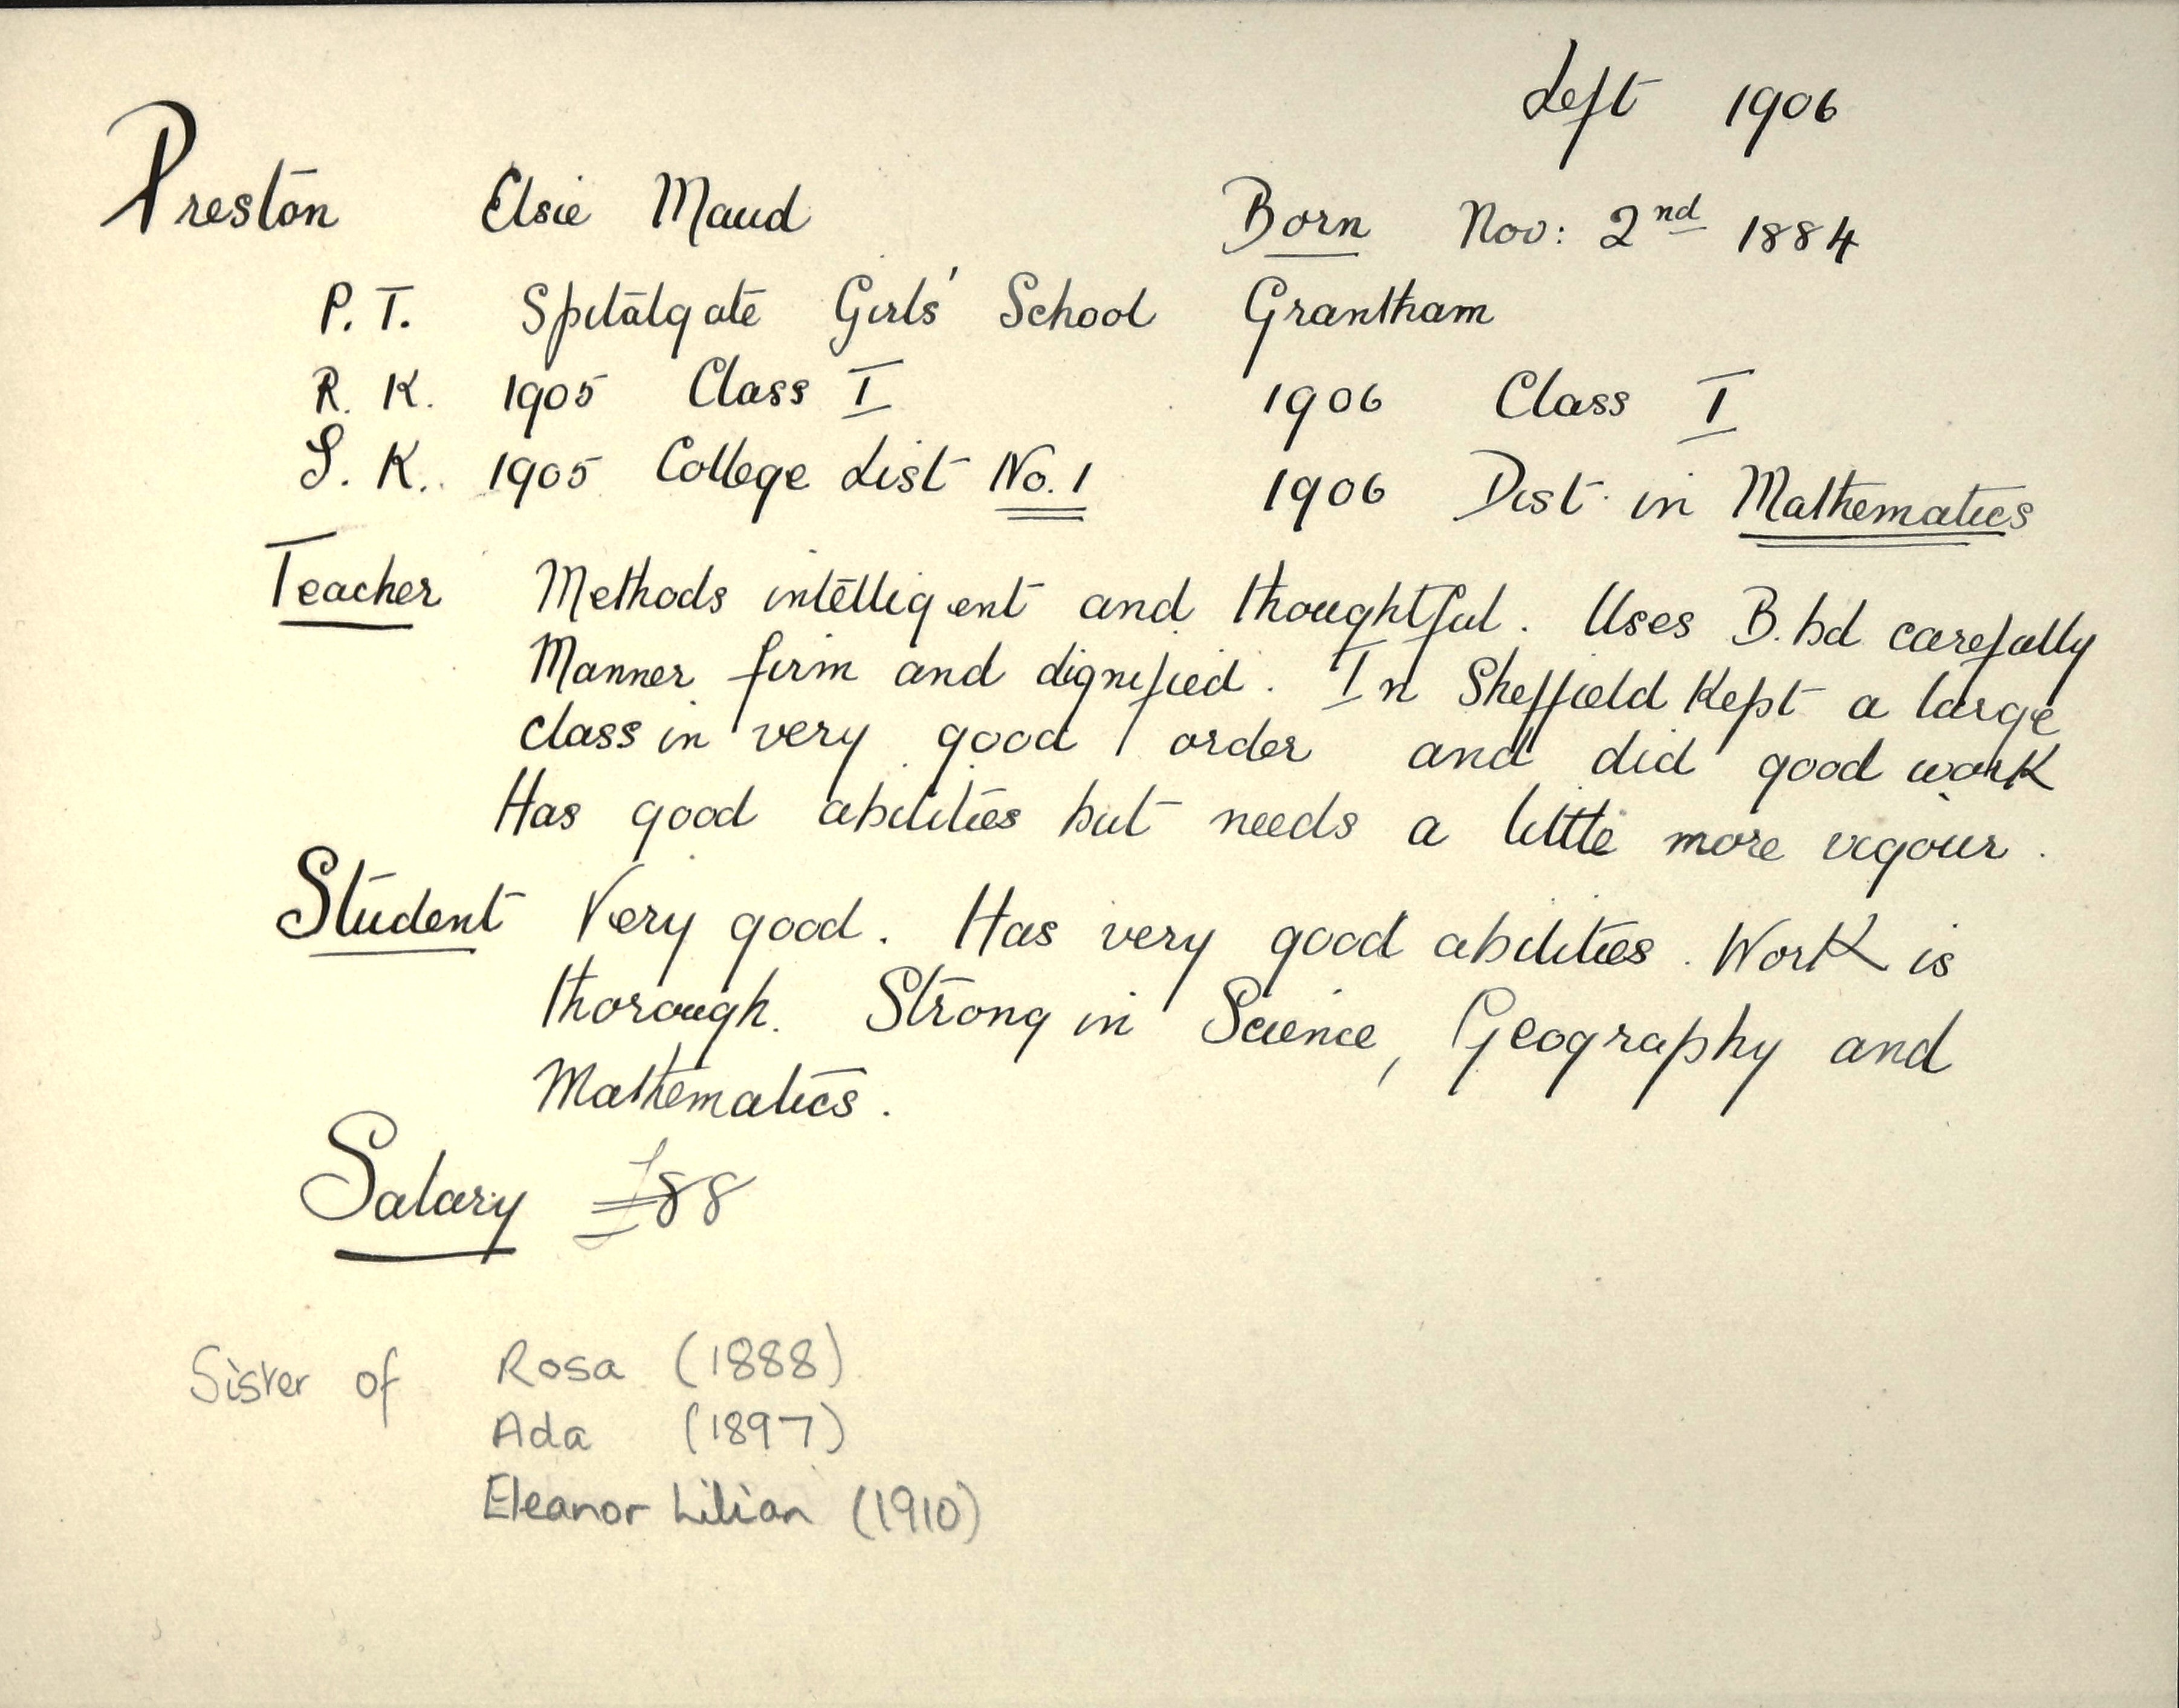 Left 1906
Preston Elsie Maud Born Nov: 2nd 1884
P. T. Spitalgate Girls' School Grantham
R. K. 1905 Class I 1906 Class I
S. K. 1905 College List No. 1 1906 Dist. in Mathematics
Teacher Methods intelligent and thoughtful. Uses B.bd carefully
Manner firm and dignified. In Sheffield Kept a large
class in very good order and did good work
Has good abilities but needs a little more vigour.
Student Very good. Has very good abilities. Work is
thorough. Strong in Science, Geography and
Mathematics.
Salary £88
Sister of Rosa (1888)
Ada (1897)
Eleanor Lilian (1910)